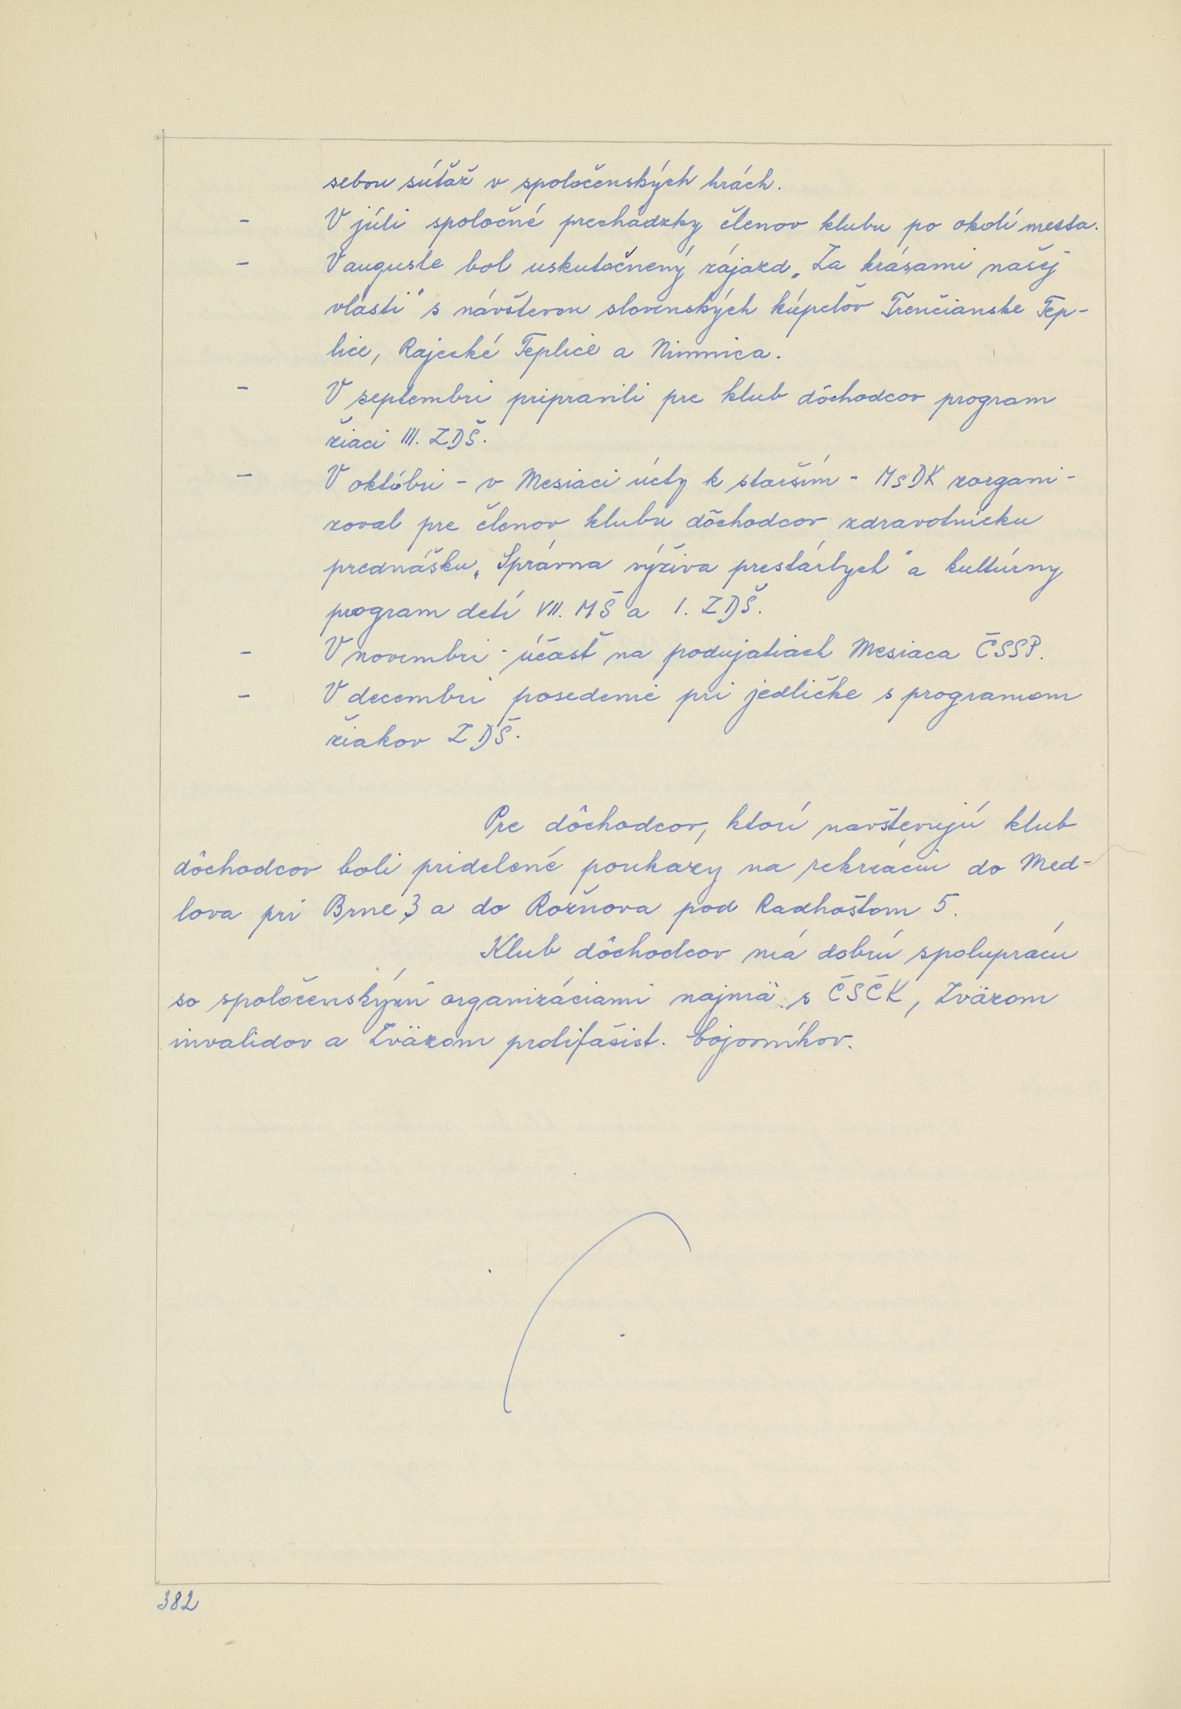 sebou súťaž v spoločenských hrách.
- V júli spoločné prechádzky členov klubu po okolí mesta.
- V auguste bol uskutočnený zájazd „Za krásami našej
vlasti" s návštevou slovenských kúpeľov Trenčianske Tep-
lice, Rajecké Teplice a Nimnica.
- V septembri pripravili pre klub dôchodcov program
žiaci III. ZDŠ.
- V októbri - v Mesiaci úcty k starším - MsDK zorgani-
zoval pre členov klubu dôchodcov zdravotnícku
prednášku „Správna výživa prestárlych" a kultúrny
program detí VII. MŠ a I. ZDŠ.
- V novembri - účasť na podujatiach Mesiaca ČSSP.
- V decembri posedenie pri jedličke s programom
žiakov ZDŠ.
Pre dôchodcov, ktorí navštevujú klub
dôchodcov boli pridelené poukazy na rekreáciu do Med-
lova pri Brne 3 a do Rožňova pod Radhoštom 5.
Klub dôchodcov má dobrú spoluprácu
so spoločenskými organizáciami najmä s ČSČK, Zväzom
invalidov a Zväzom protifašist. bojovníkov.
382